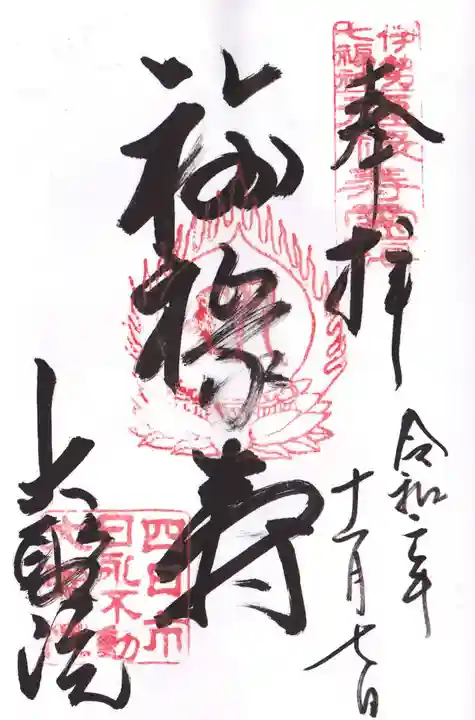 伊勢
七福神
奉拝
令和二年
十一月七日
福禄寿
大聖院
四日市
日永不動